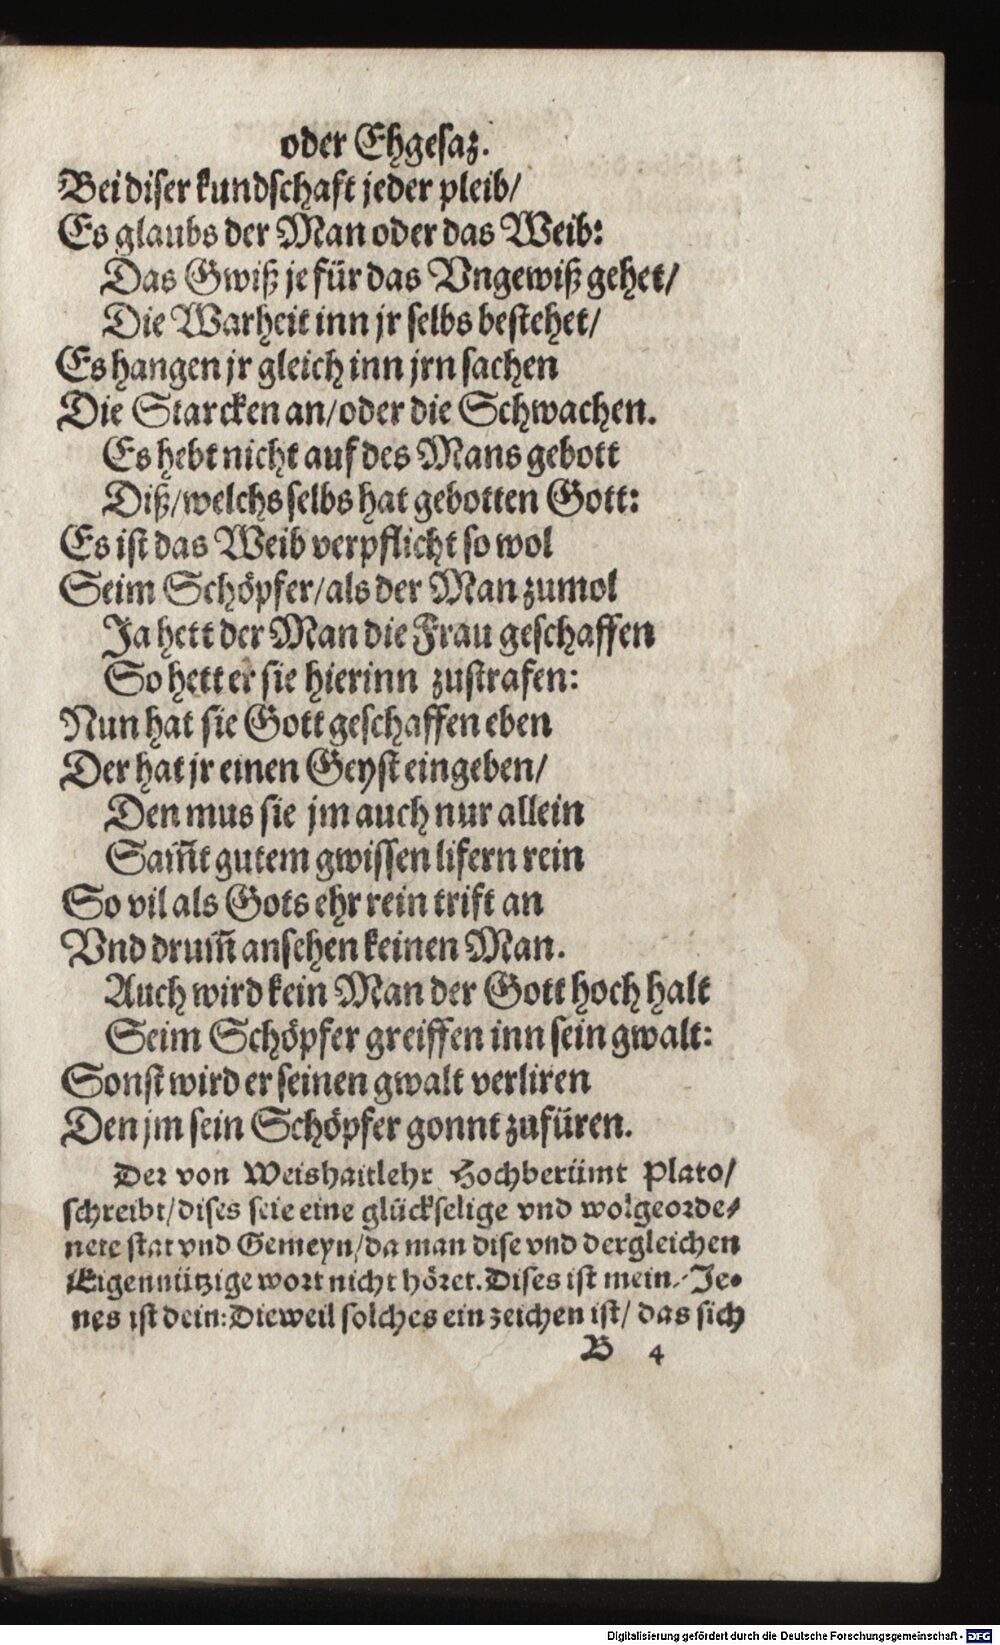 oder Ehgesaz.
Bei diser kundschaft jeder pleib/
Es glaubs der Man oder das Weib:
Das Gwiß je für das Vngewiß gehet/
Die Warheit inn jr selbs bestehet/
Es hangen jr gleich inn jrn sachen
Die Starcken an/oder die Schwachen.
Es hebt nicht auf des Mans gebott
Diß/welchs selbs hat gebotten Gott:
Es ist das Weib verpflicht so wol
Seim Schöpfer/als der Man zumol
Ja hett der Man die Frau geschaffen
So hett er sie hierinn zustrafen:
Nun hat sie Gott geschaffen eben
Der hat jr einen Geyst eingeben/
Den mus sie jm auch nur allein
Sam̄t gutem gwissen lifern rein
So vil als Gots ehr rein trift an
Vnd drum̄ ansehen keinen Man.
Auch wird kein Man der Gott hoch halt
Seim Schöpfer greiffen inn sein gwalt:
Sonst wird er seinen gwalt verliren
Den jm sein Schöpfer gonnt zufüren.
Der von Weishaitlehr Hochberümt Plato/
schreibt/dises seie eine glückselige vnd wolgeorde-
nete stat vnd Gemeyn/da man dise vnd dergleichen
Eigennützige wort nicht höret. Dises ist mein. Je-
nes ist dein: Dieweil solches ein zeichen ist/ das sich
B 4
Digitalisierung gefördert durch die Deutsche Forschungsgemeinschaft - DFG